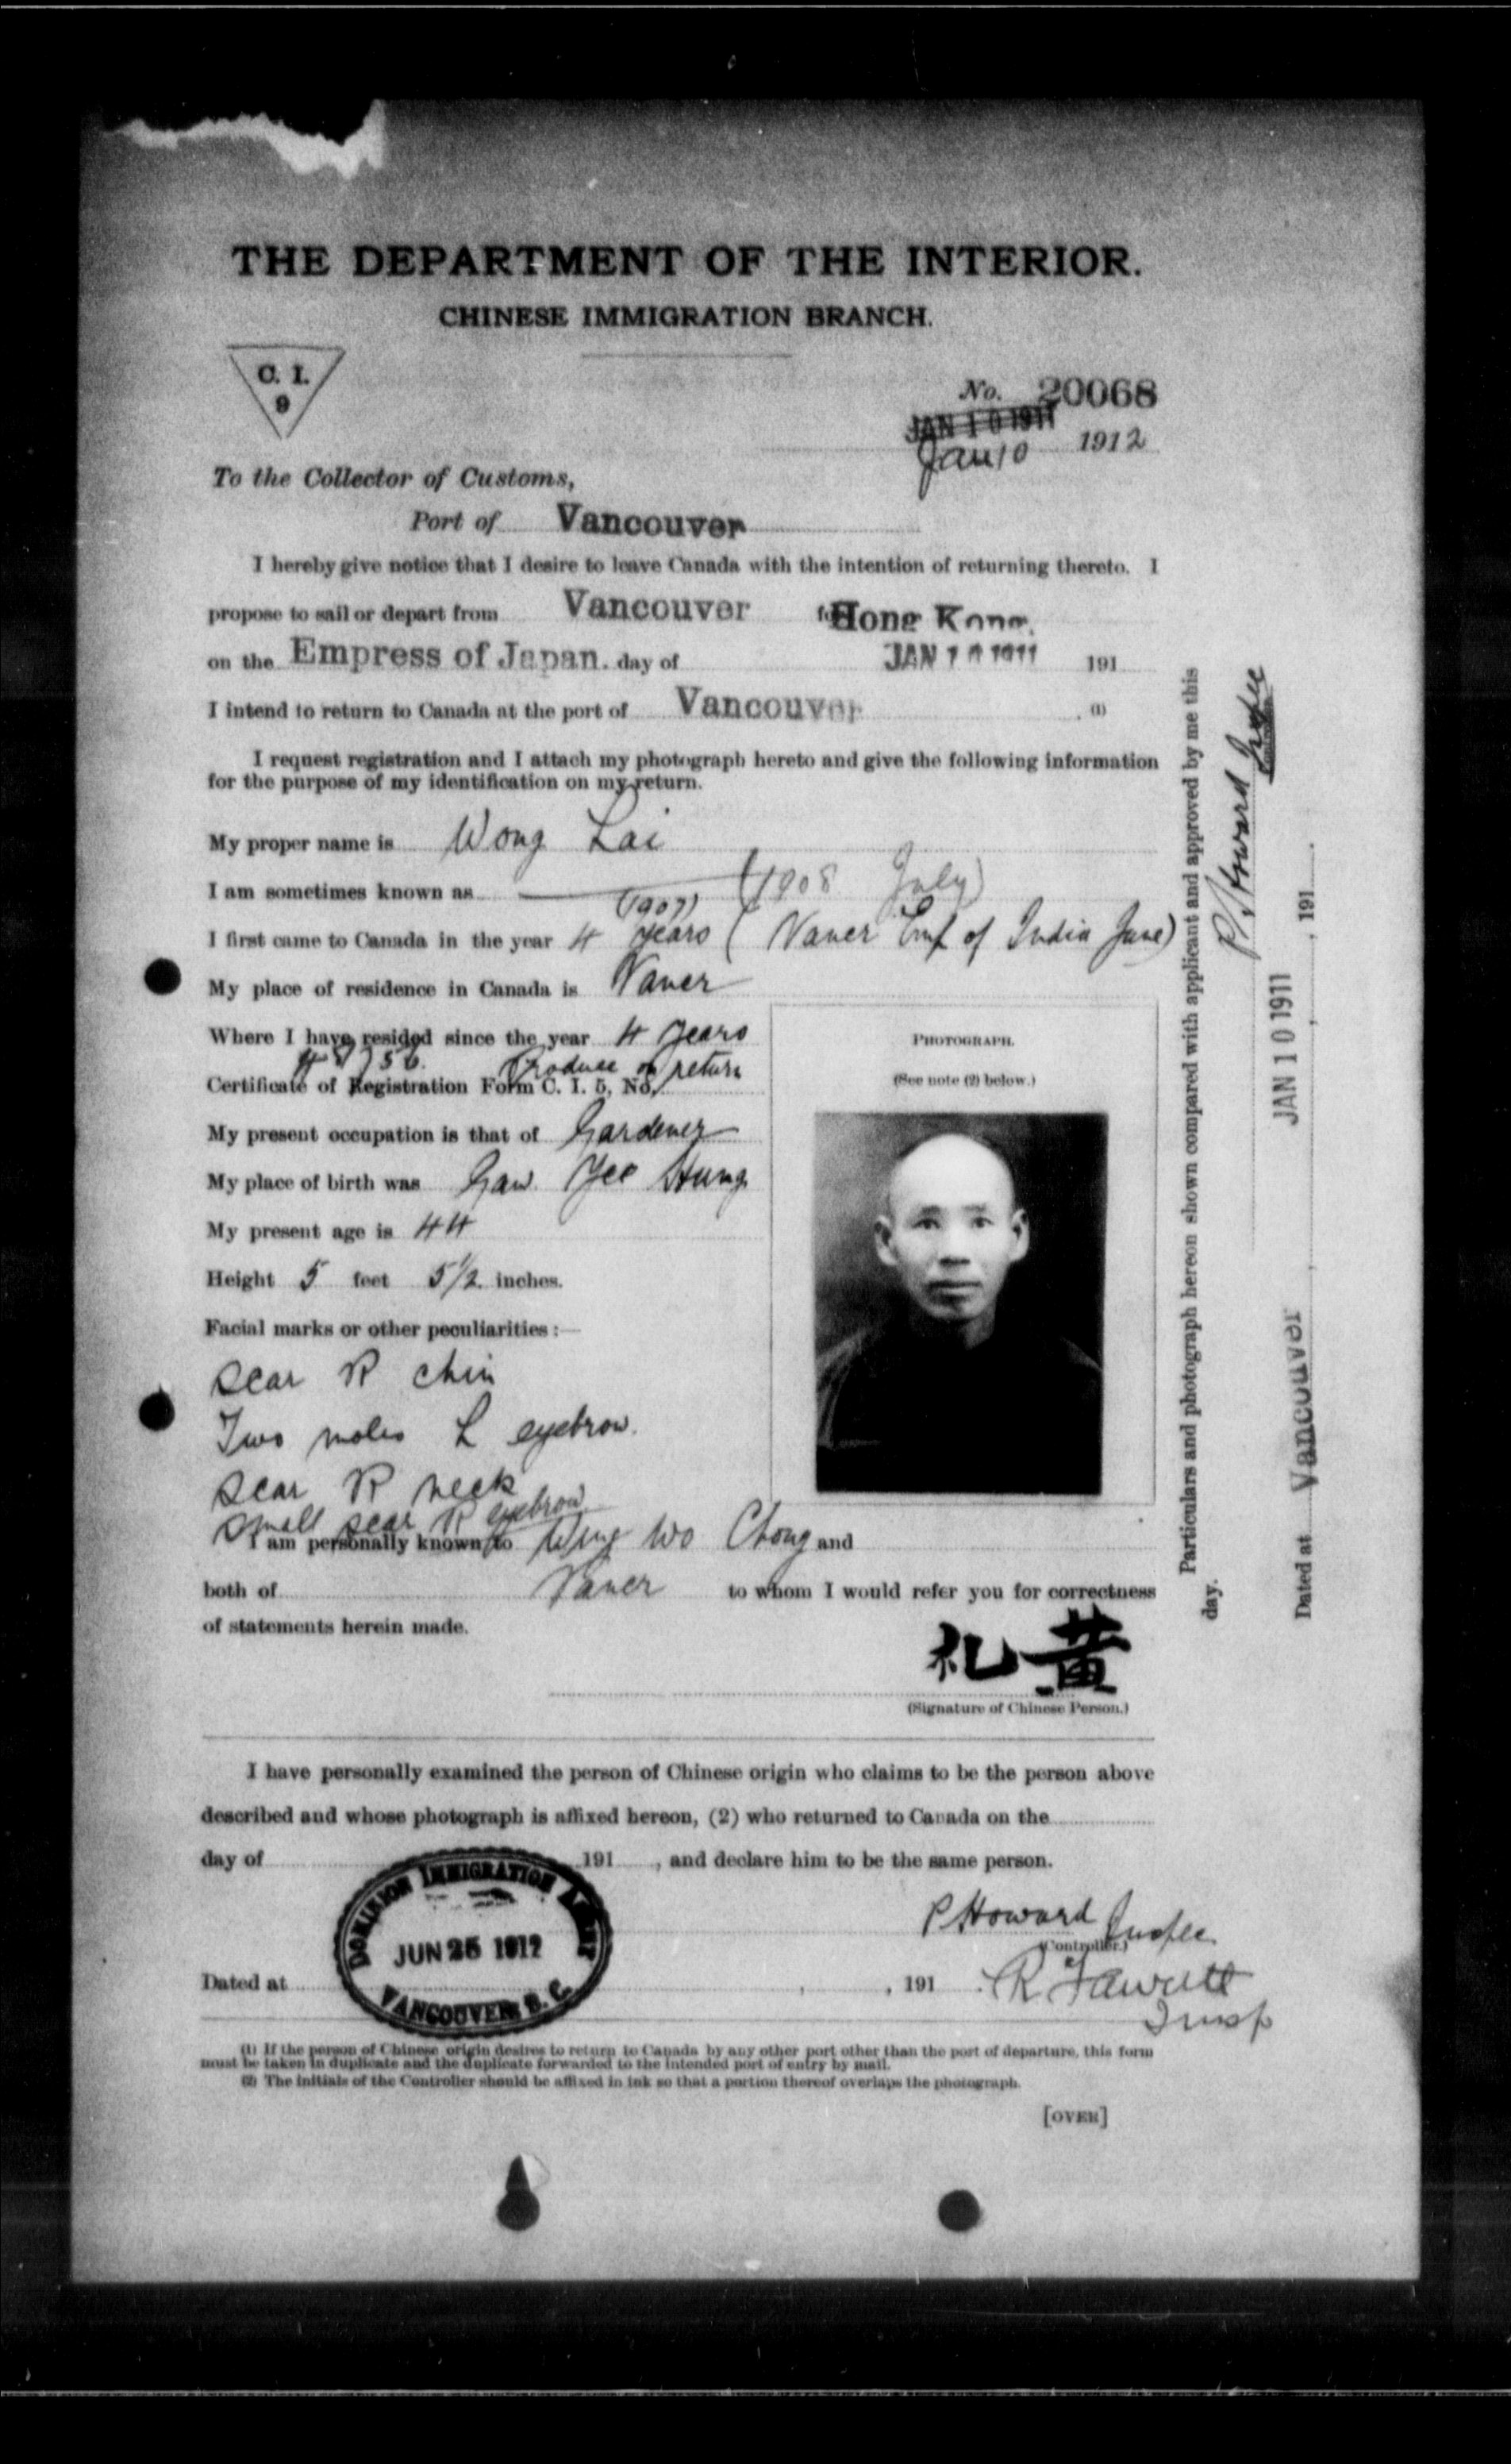 THE DEPARTMENT OF THE INTERIOR.
CHINESE IMMIGRATION BRANCH.
C. I.
9
No. 20068
JAN 10 1911
Jan 10 1912
To the Collector of Customs,
Port of Vancouver
I hereby give notice that I desire to leave Canada with the intention of returning thereto. I
propose to sail or depart from Vancouver Hong Kong.
on the Empress of Japan. day of JAN 10 1911 191
I intend to return to Canada at the port of Vancouver . (1)
I request registration and I attach my photograph hereto and give the following information
for the purpose of my identification on my return.
My proper name is Wong Lai
I am sometimes known as (1908 July)
(1907)
I first came to Canada in the year 4 years ( Vancr Emp of India June)
My place of residence in Canada is Vancr
Where I have resided since the year 4 years
Produce on return
Certificate of Registration Form C. I. 5, No.
My present occupation is that of Gardener
My place of birth was Gaw Yee Hung
My present age is 44
Height 5 feet 5 1/2 inches.
Facial marks or other peculiarities :—
Scar R chin
Two moles L eyebrow.
Scar R neck
Small scar R eyebrow
I am personally known to Wing Wo Chong and
both of Vancr to whom I would refer you for correctness
of statements herein made.
礼黃
(Signature of Chinese Person.)
I have personally examined the person of Chinese origin who claims to be the person above
described and whose photograph is affixed hereon, (2) who returned to Canada on the
day of 191 , and declare him to be the same person.
P Howard Inspec.
(Controller.)
Dated at , 191 .
R Fawcett
Insp
DOMINION IMMIGRATION AGENT
JUN 25 1912
VANCOUVER, B. C.
(1) If the person of Chinese origin desires to return to Canada by any other port other than the port of departure, this form
must be taken in duplicate and the duplicate forwarded to the intended port of entry by mail.
(2) The initials of the Controller should be affixed in ink so that a portion thereof overlaps the photograph.
[OVER]
PHOTOGRAPH.
(See note (2) below.)
Particulars and photograph hereon shown compared with applicant and approved by me this
day.
P Howard Inspec
Dated at Vancouver , JAN 10 1911 , 191 .